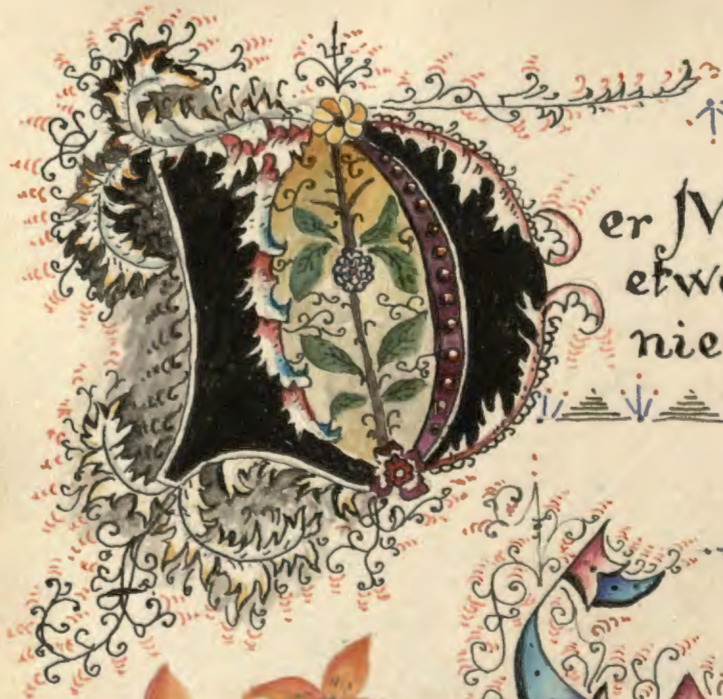 Der
etw
nie